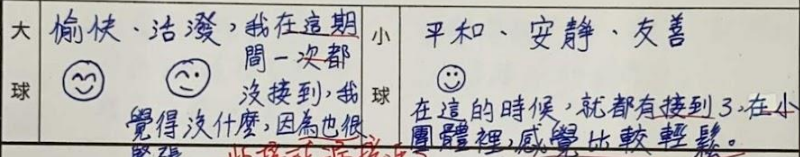 大球
愉快、活潑，我在這期
間一次都
沒接到，我
覺得沒什麼，因為也很
緊張
小球
平和、安靜、友善
在這的時候，就都有接到了，在小
團體裡，感覺比較輕鬆。